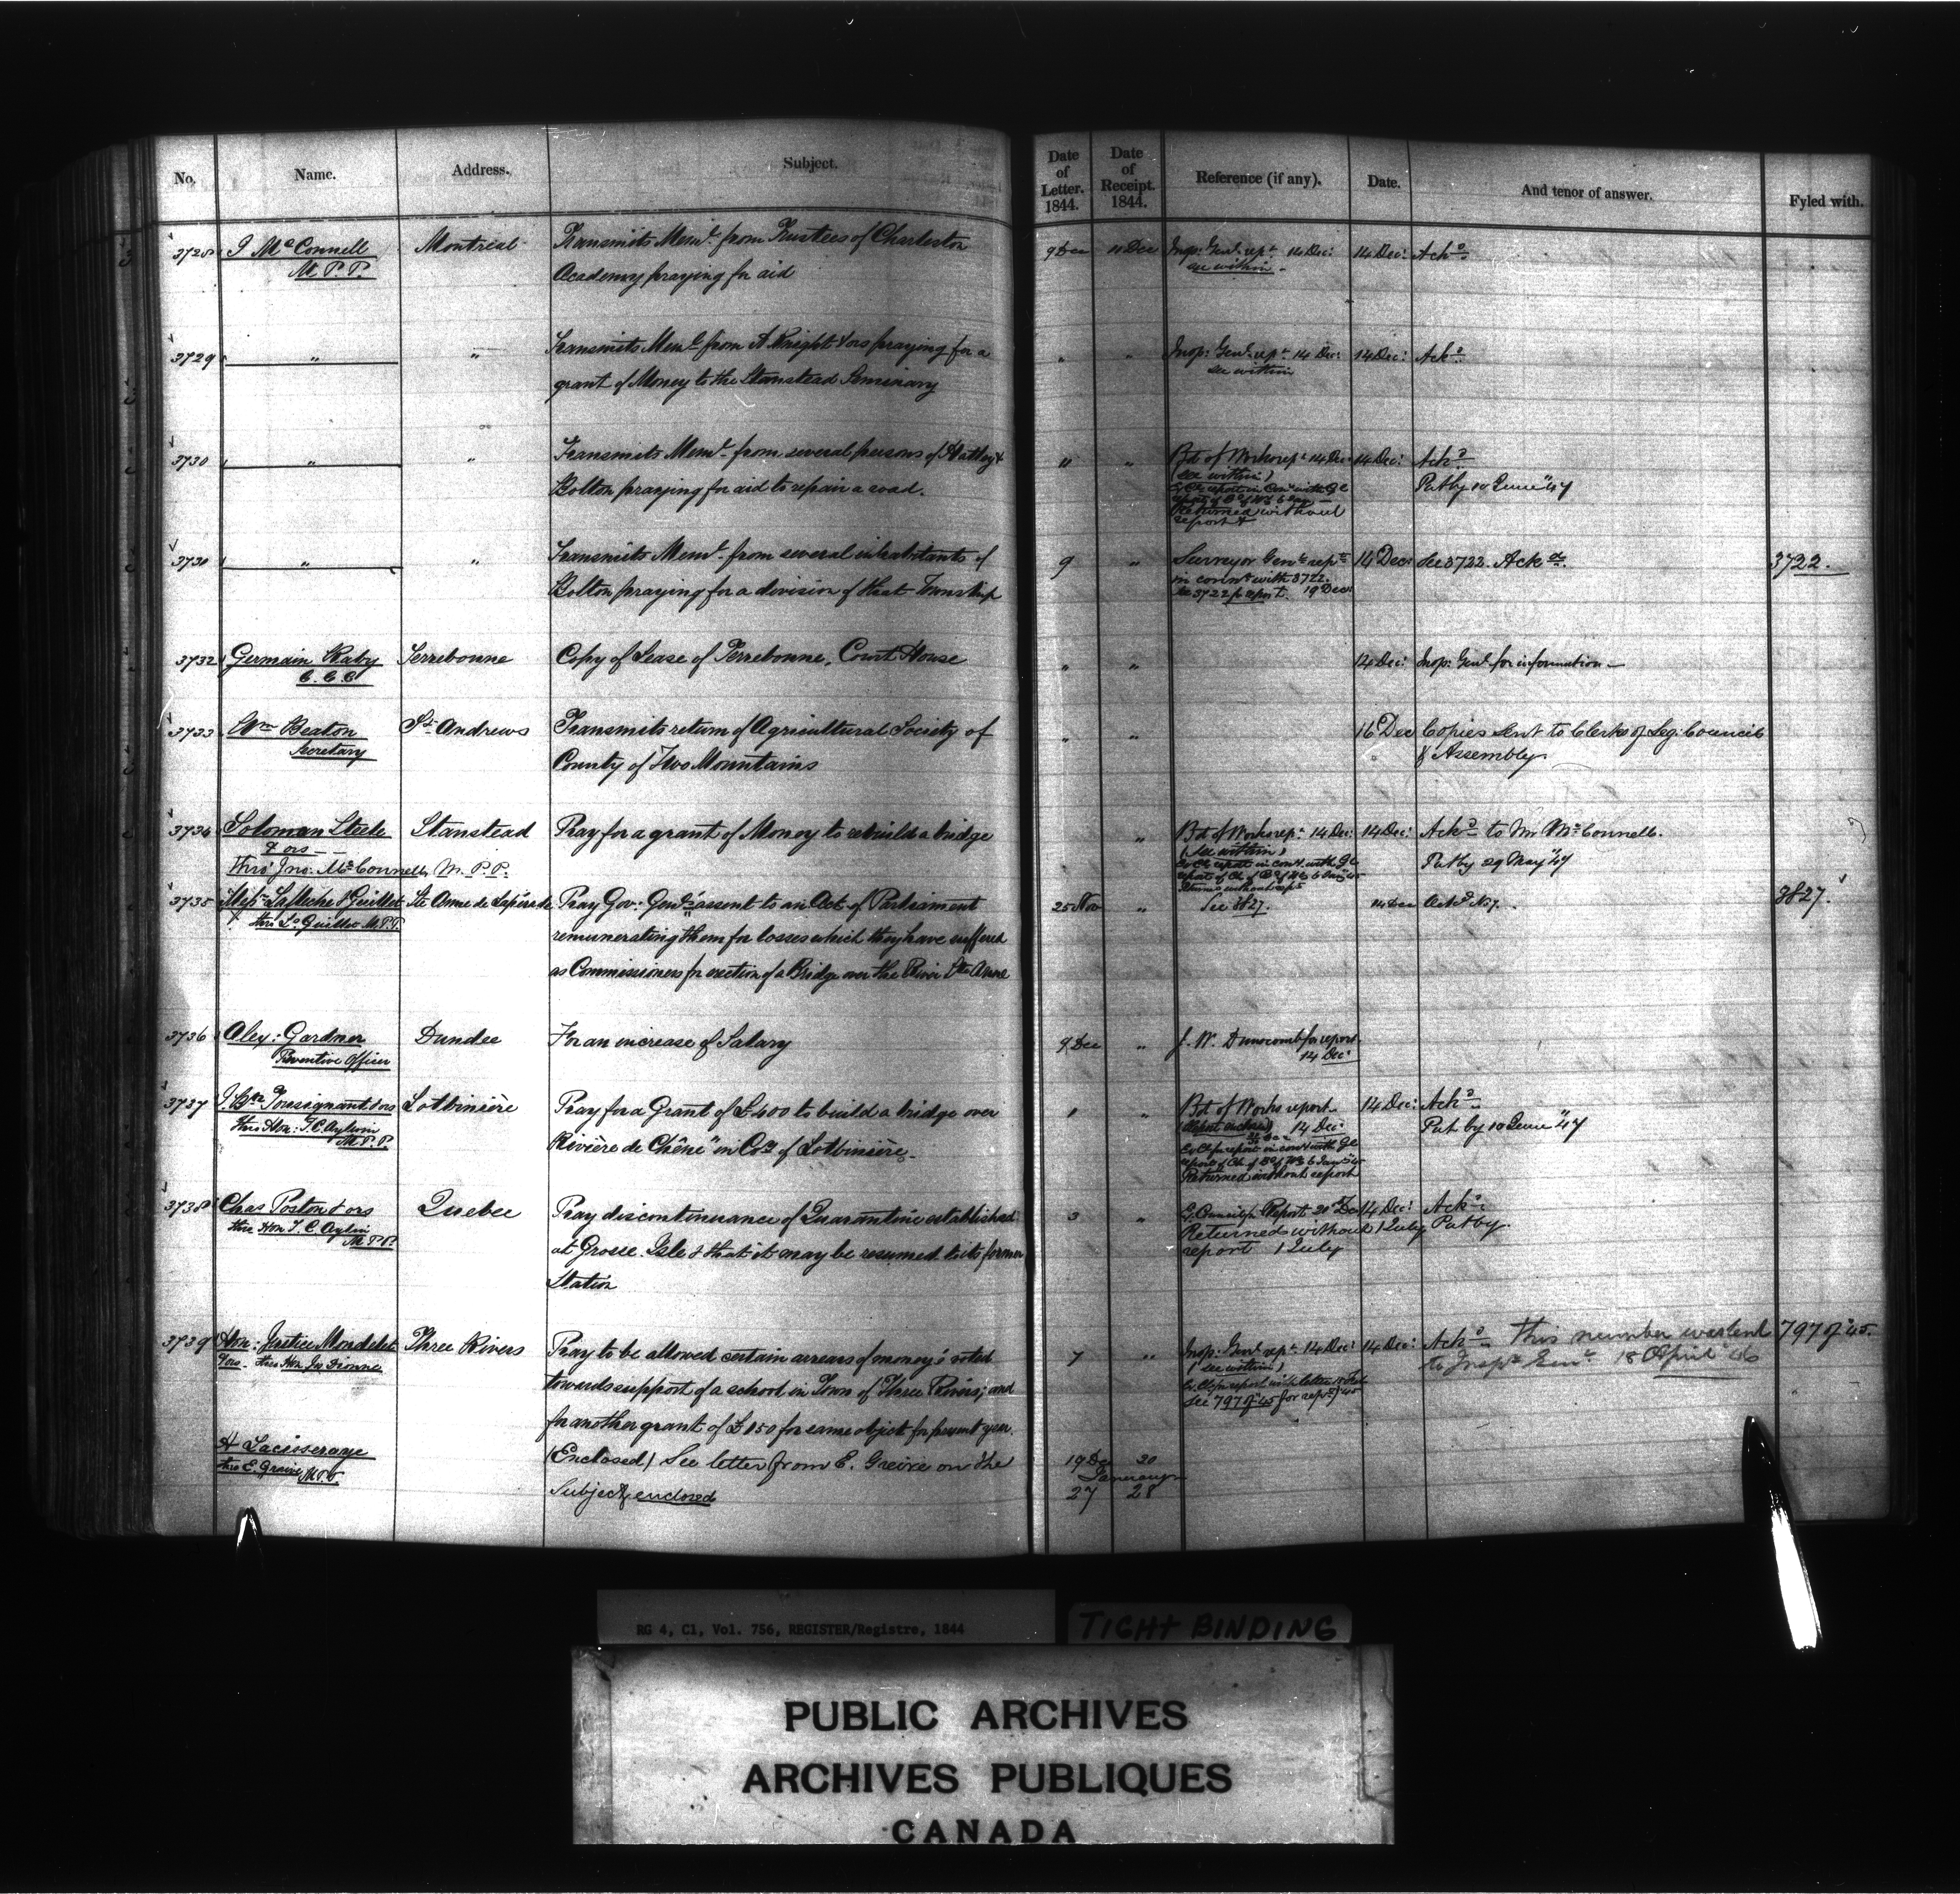 No. Name. Address. Subject. Date of Letter. 1844. Date of Receipt. 1844. Reference (if any). Date. And tenor of answer. Fyled with.
3728 J McConnell Montreal Transmits Meml. from Trustees of Charleston 9 Dec 11 Dec Insp: Genl. rept 14 Dec: 14 Dec: Ackd.
M.P.P. Academy praying for aid see within -
3729 " " Transmits Meml from A Knight & ors praying for a " " Insp: Genl. rept 14 Dec: 14 Dec: Ackd.
grant of Money to the Stanstead Seminary see within
3730 " " Transmits Meml. from several persons of Hatley & " " Bd of Works rept 14 Dec 14 Dec: Ackd.
Bolton praying for aid to repair a road. (see within) Put by 10 June "47
Returned without
report
3730 " " Transmits Meml. from several inhabitants of 9 " Surveyor Genl rept 14 Dec: See 3722. Ackd. 3722.
Bolton praying for a division of that Township in connn with 3722.
see 3722 for report. 19 Dec:
3732 Germain Raby Terrebonne Copy of Lease of Terrebonne, Court House " " 14 Dec: Insp: Genl. for information -
C.C.C
3733 Wm Beaton St. Andrews Transmits return of Agricultural Society of " " 16 Dec Copies sent to Clerks of Leg: Council
Secretary County of Two Mountains & Assembly
3734 Soloman Steele Stanstead Pray for a grant of Money to rebuild a bridge " Bd of Works rept 14 Dec: 14 Dec: Ackd. to Mr McConnell.
& ors (See within)
thro' Jno: McConnell, M.P.P. Put by 29 May "47
3735 Messrs LaFleche & Guillet Ste Anne de Lapérade Pray Gov: Genl's assent to an Act of Parliament 25 Nov " See 3827. 14 Dec Ackd. 3827.
thro Ls Guillet M.P.P. remunerating them for losses which they have suffered
as Commissioners for erection of a Bridge over the River Ste Anne
3736 Alex: Gardner Dundee For an increase of Salary 9 Dec " J. W. Dunscomb for report
Preventive Officer 14 Dec:
3737 J. Bte Tousignant & ors Lotbinière Pray for a Grant of £400 to build a bridge over " " Bd of Works report 14 Dec: Ackd.
thro Hon: T.C. Aylwin Rivière de Chêne" in Co. of Lotbinière. (Report enclosed) 14 Dec: Put by 10 June "47
M.P.P.
Returned without report
3738 Chas Poston & ors Quebec Pray discontinuance of Quarantine established 3 " Ex Council for Report 20 Dec 14 Dec: Ackd.
thro Hon T. C. Aylwin at Grosse Isle & that it may be resumed to its former Returned without 1 July Put by.
M.P.P. Station report 1 July
3739 Hon: Justice Mondelet Three Rivers Pray to be allowed certain arrears of money's voted 7 " Insp: Genl. rept. 14 Dec: 14 Dec: Ackd. This number was sent 797 of "45.
& ors - thro Hon Jn Dionne towards support of a school in Town of Three Rivers; and see within) to Inspr Genl. 18 April "46
for another grant of £150 for same object for present year. See 797 of "45 for rept)
(Enclosed) See letter from E. Greive on the 19 Dec 20
thro E. Greive M.P.P Subject enclosed January
27 28
RG 4, C1, Vol. 756, REGISTER/Registre, 1844
TIGHT BINDING
PUBLIC ARCHIVES
ARCHIVES PUBLIQUES
CANADA